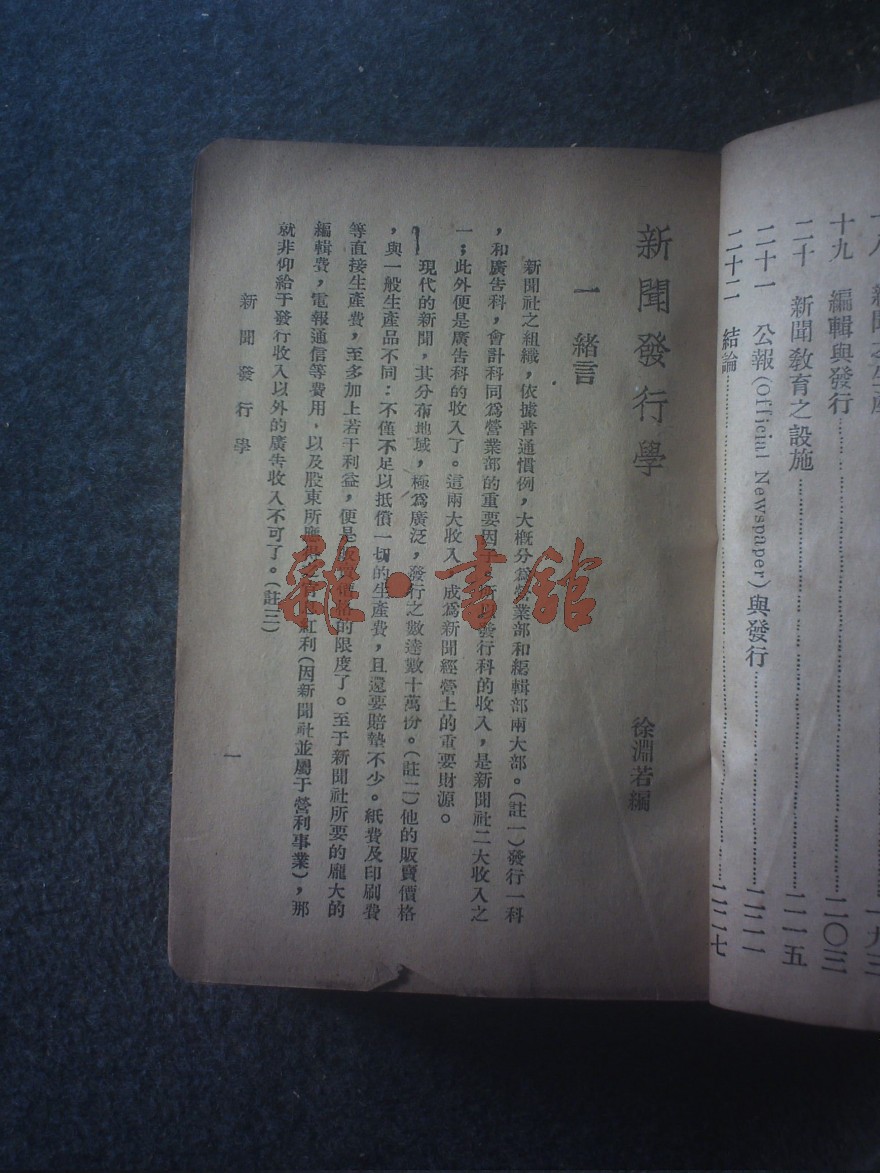 十九 編輯與發行……二〇三
二十 新聞教育之設施……二一五
二十一 公報(Official Newspaper)與發行……二二一
二十二 結論……二二七
新聞發行學
徐淵若編
一 緒言
新聞社之組織，依據普通慣例，大概分爲營業部和編輯部兩大部。(註一)發行一科
，和廣告科，會計科同爲營業部的重要因子。所以發行科的收入，是新聞社二大收入之
一；此外便是廣告科的收入了。這兩大收入，成爲新聞經營上的重要財源。
現代的新聞，其分布地域，極爲廣泛，發行之數達數十萬份。(註二)他的販賣價格
，與一般生產品不同：不僅不足以抵償一切的生產費，且還要賠墊不少。紙費及印刷費
等直接生產費，至多加上若干利益，便是販賣價格的限度了。至于新聞社所要的龐大的
編輯費，電報通信等費用，以及股東所應紅利(因新聞社並屬于營利事業)，那
就非仰給于發行收入以外的廣告收入不可了。(註三)
新聞發行學
一
雜·書館